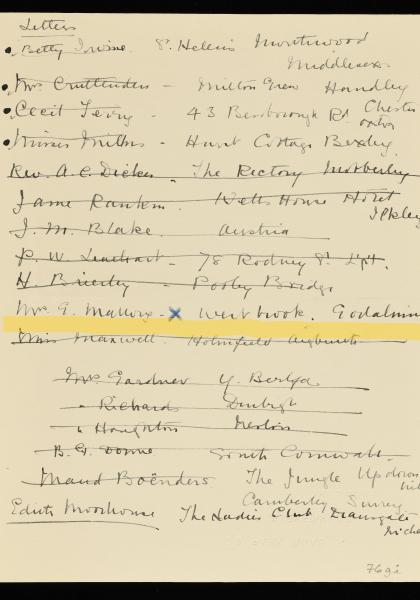 Letters
Betty Irvine. St. Helens Northwood
Middlesex.
Mrs Cruttenden - Milton Green Handley
Cecil Terry - 43 Bessborough Rd Chester
Hunt Cottage Bexley.
Rev. A. C. Dicker. The Rectory Mobberley
Jame Rankin. Wells House Hotel
Ilkley
J. M. Blake. Austria
P. W. 78 Rodney St. L'pl.
H. Brierley - Pooley Bridge
Mrs. G. Mallory - x Westbrook. Godalmin
Miss Maxwell. Holmfield Aigburth
Mrs. Gardner Y. Berlya.
" Richards Denbigh
" Houghton
B. G. Donne South Cornwall.
Maud The Jungle
Camberley Surrey
Edith Moorhouse The Ladies Club Deansgate